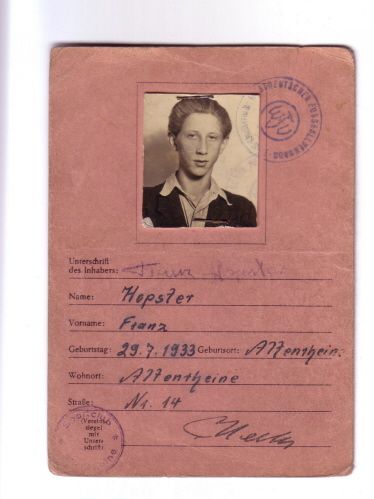 WESTDEUTSCHER FUSSBALLVERBAND
Unterschrift
des Inhabers: Franz Hopster
Name: Hopster
Vorname: Franz
Geburtstag: 29.7.1933 Geburtsort: Altenrhein.
Wohnort: Altenrheine
Straße: Nr. 14
(Vereins-
siegel
mit
Unter-
schrift)